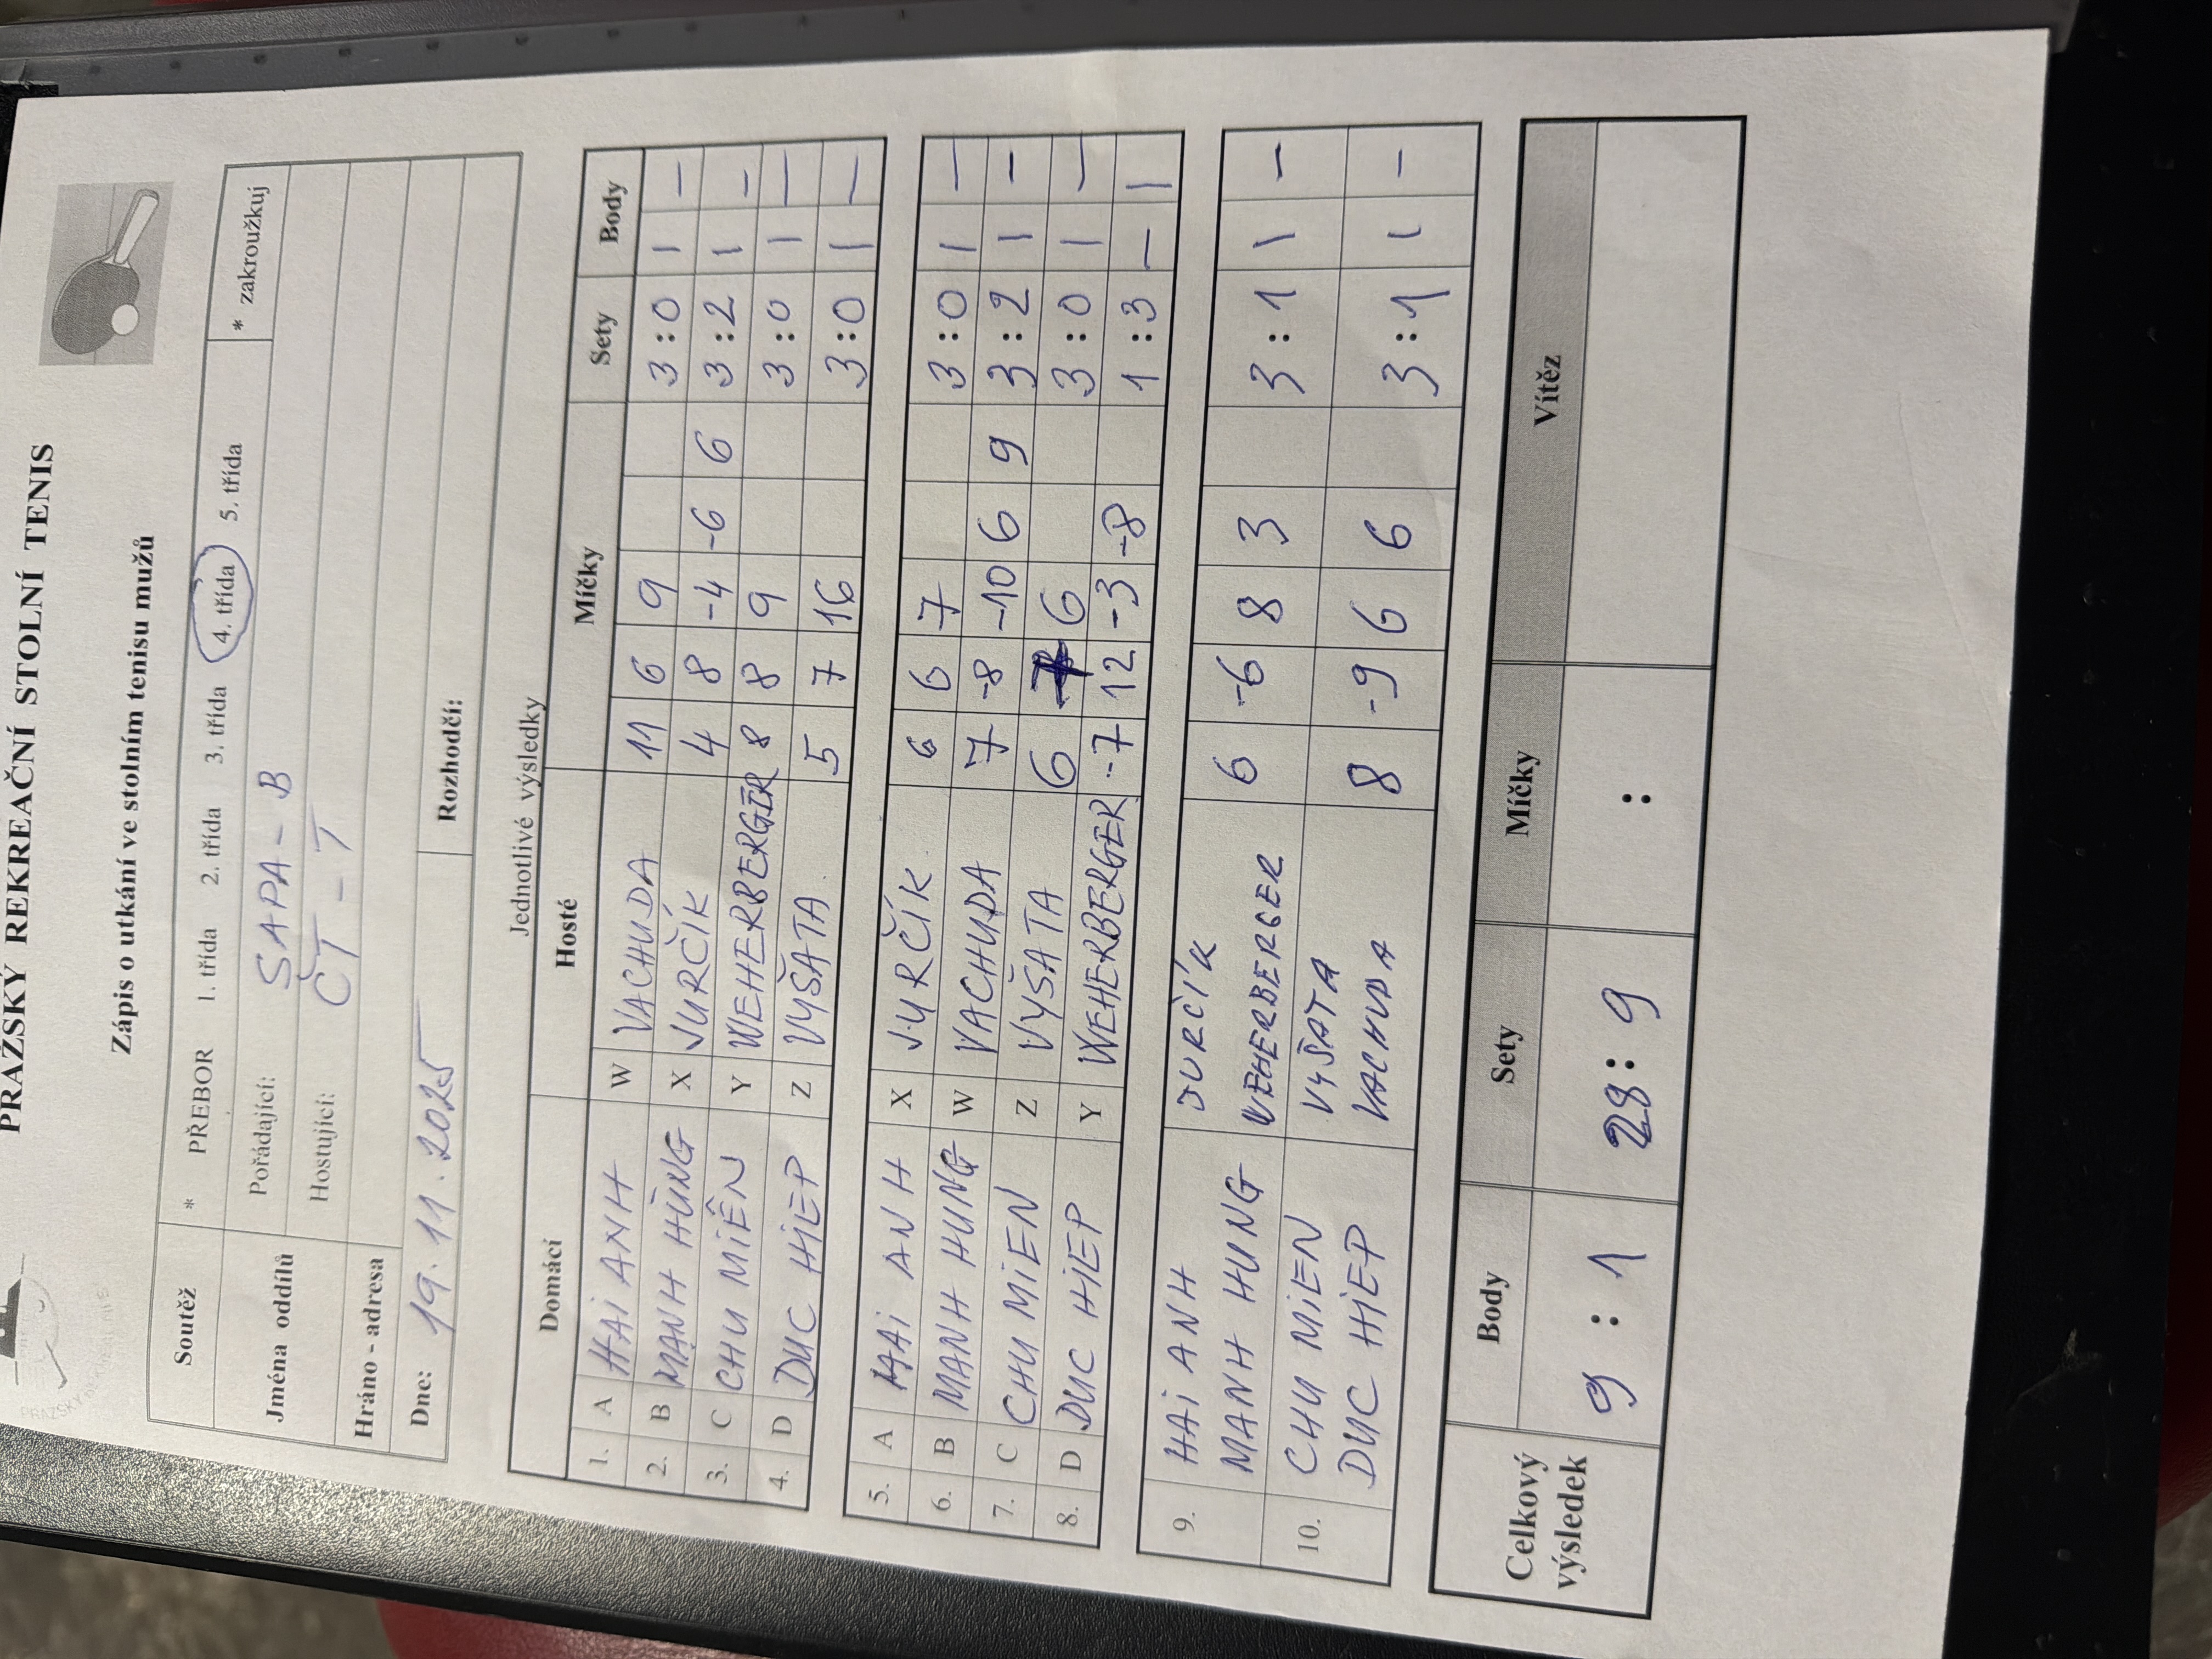 PRAŽSKÝ REKREAČNÍ STOLNÍ TENIS
Zápis o utkání ve stolním tenisu mužů
Soutěž * PŘEBOR 1. třída 2. třída 3. třída 4. třída 5. třída * zakroužkuj
Jména oddílů Pořádající: SAPA - B
Hostující: ČT - T
Hráno - adresa
Dne: 19. 11. 2025 Rozhodčí:
Jednotlivé výsledky
Domácí Hosté Míčky Sety Body
1. A HAI ANH W VACHUDA 11 6 9 3:0 1 –
2. B MANH HÙNG X JURČÍK 4 8 -4 -6 6 3:2 1 –
3. C CHU MIÊN Y WEHERBERGER 8 8 9 3:0 1 –
4. D DUC HIEP Z VYŠATA 5 7 16 3:0 1 –
5. A HAI ANH X JURČÍK 6 6 7 3:0 1 –
6. B MANH HUNG W VACHUDA 7 -8 -10 6 9 3:2 1 –
7. C CHU MIEN Z VYŠATA 6 6 3:0 1 –
8. D DUC HIEP Y WEHERBERGER -7 12 -3 -8 1:3 – 1
9. HAI ANH JURČÍK 6 -6 8 3 3:1 1 –
MANH HUNG WEHERBERGER
10. CHU MIEN VYŠATA 8 -9 6 6 3:1 1 –
DUC HIEP VACHUDA
Celkový výsledek Body Sety Míčky Vítěz
9 : 1 28 : 9 :